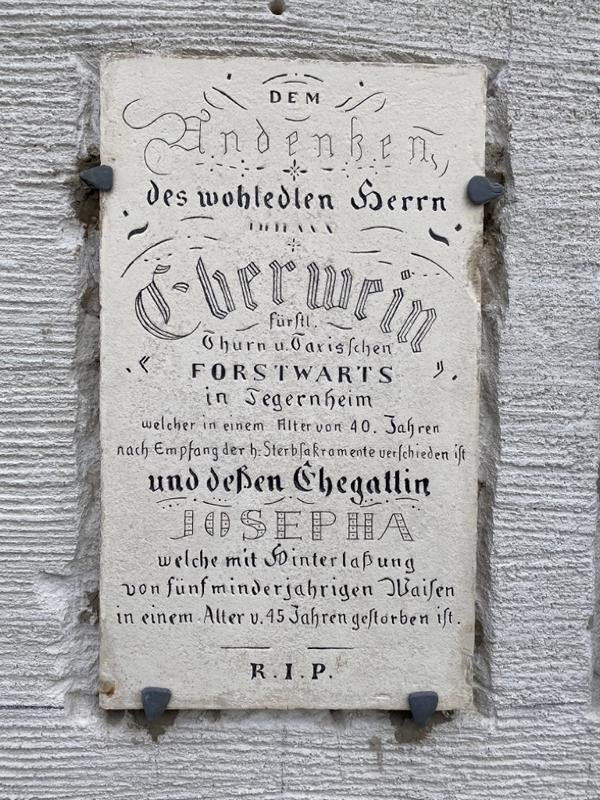 DEM
Andenken,
des wohledlen Herrn
Eberwein
fürstl.
Thurn u. Taxisſchen
FORSTWARTS
in Tegernheim
welcher in einem Alter von 40. Jahren
nach Empfang der h: Sterbſakramente verſchieden iſt
und deßen Ehegattin
JOSEPHA
welche mit Hinterlaßung
von fünf minderjahrigen Waiſen
in einem Alter v. 45 Jahren geſtorben iſt.
R.I.P.